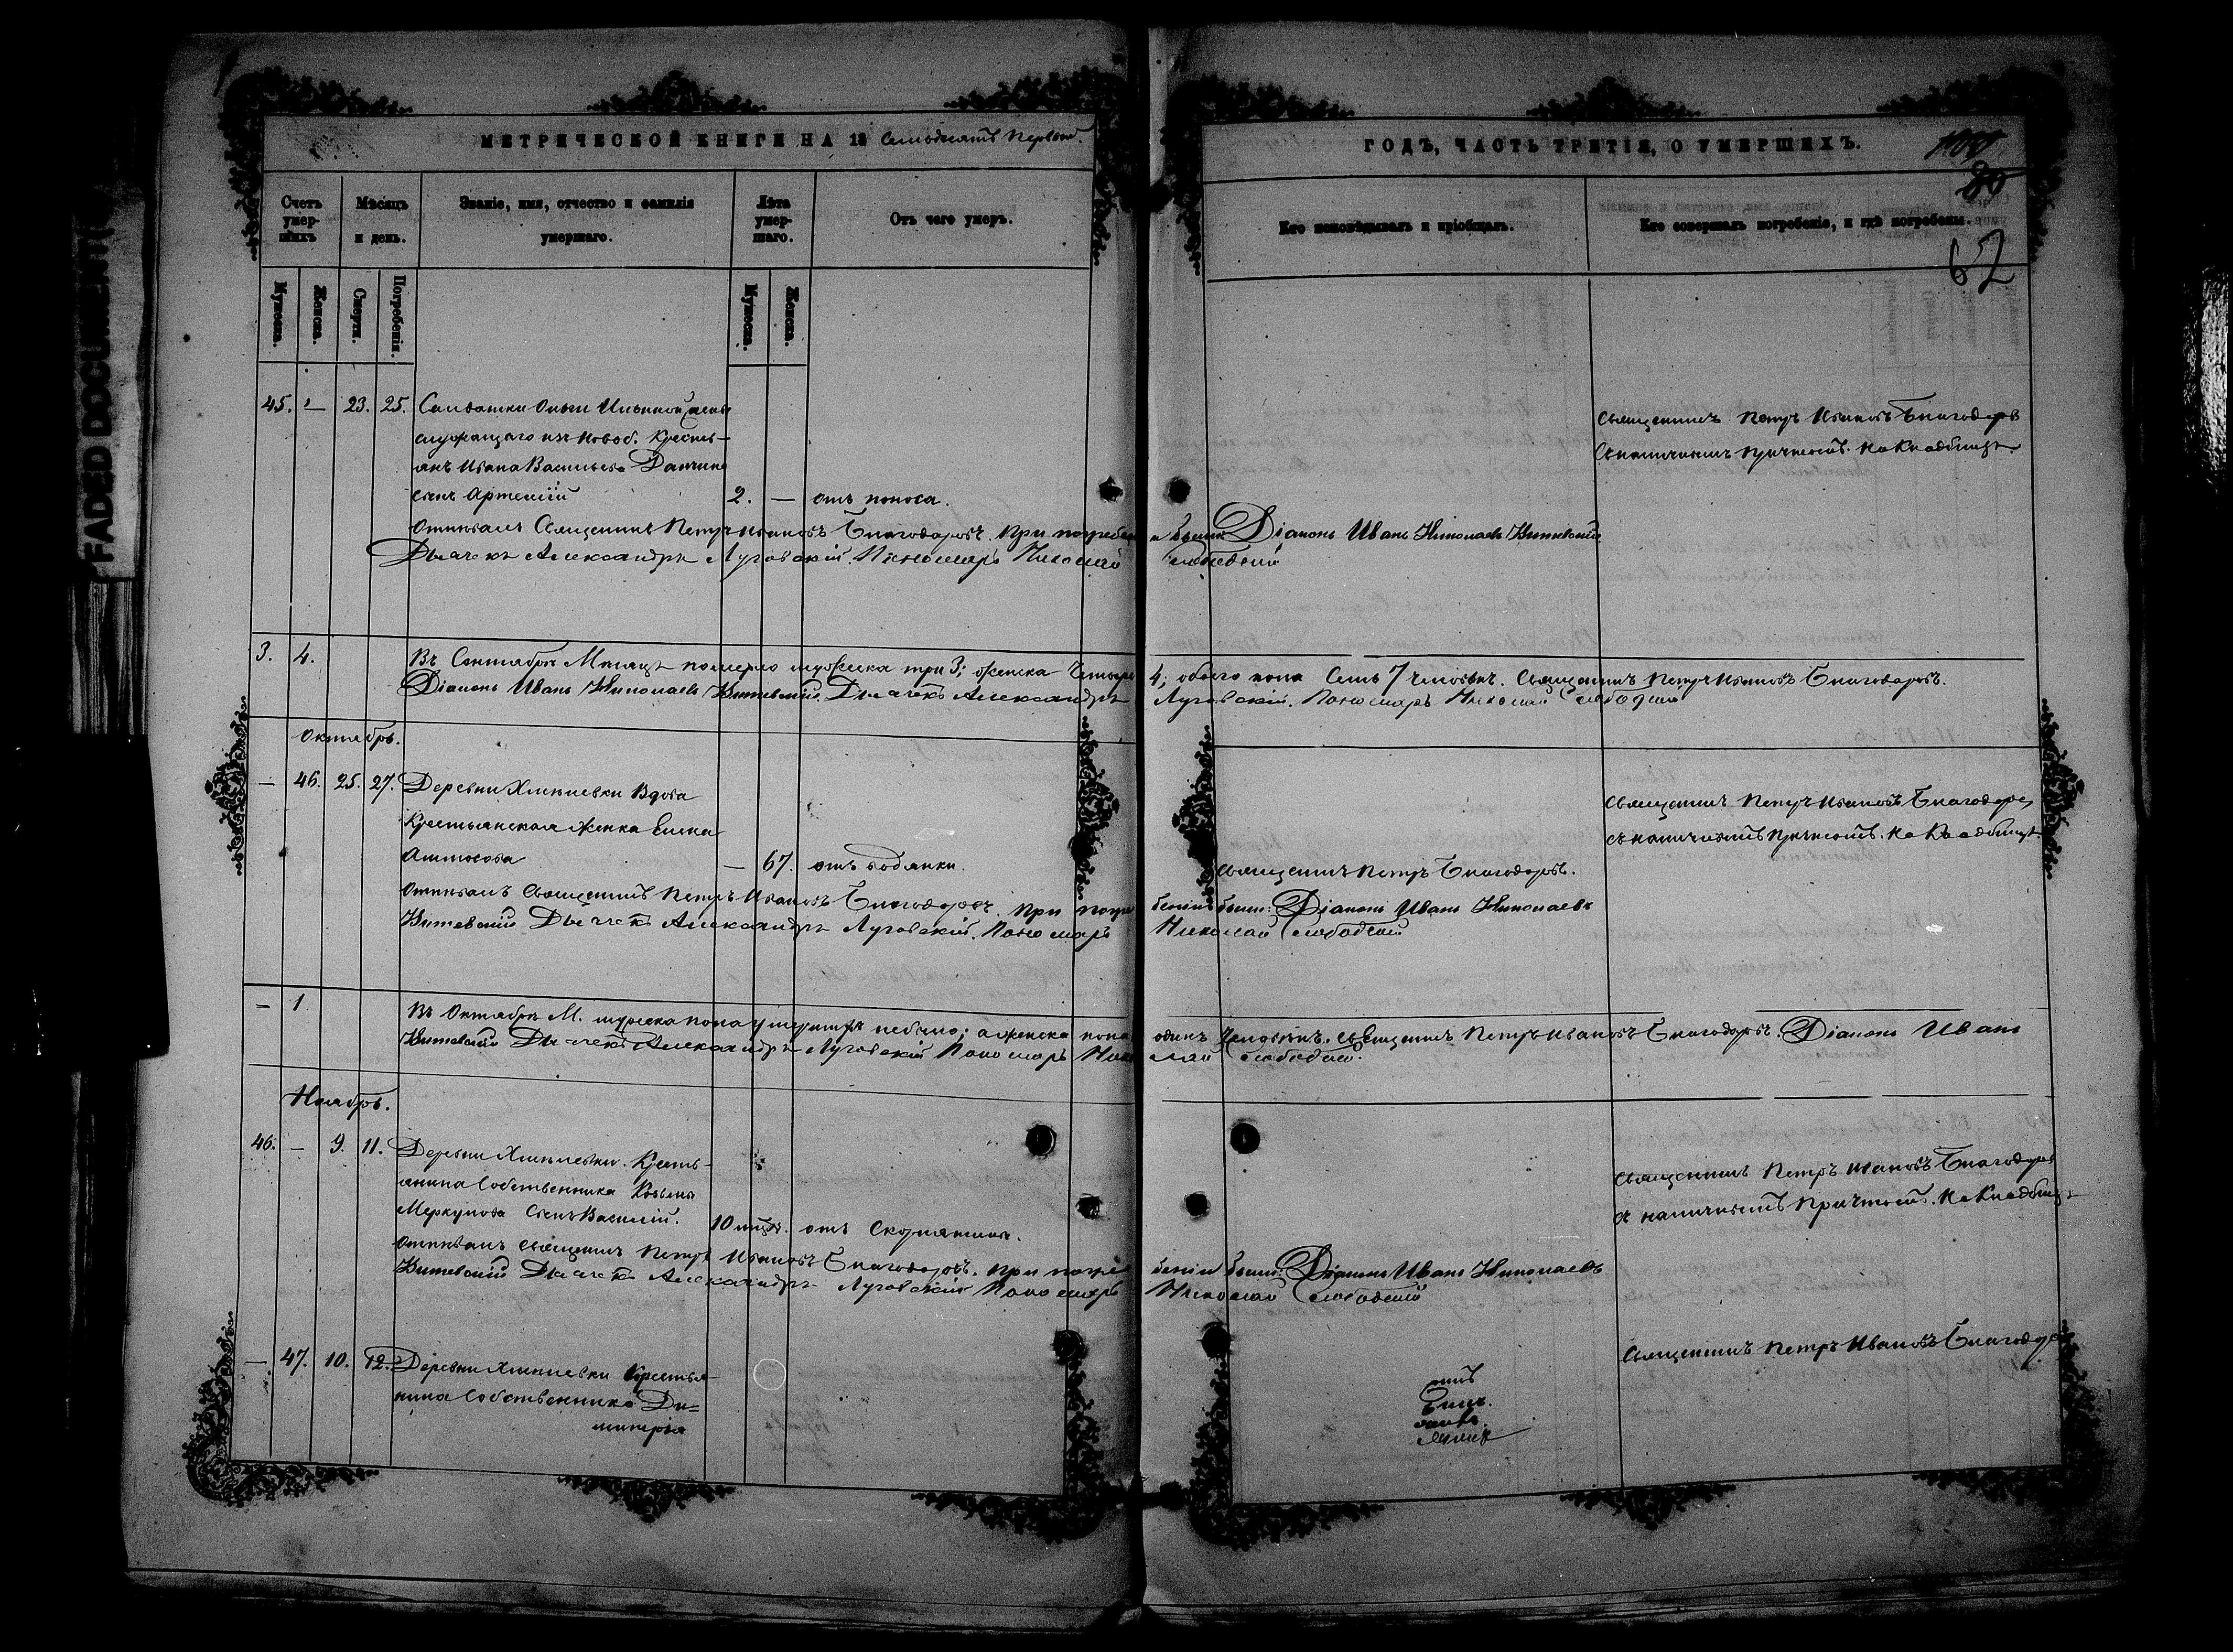 FADED DOCUMENT
МЕТРИЧЕСКОЙ КНИГИ НА 18 семьдесятъ первый.
Счетъ умер- шихъ
Мѣсяцъ и день.
Званіе, имя, отчество и фамилія умершаго.
Лѣта умер- шаго.
Отъ чего умеръ.
Мужеска.
Женска.
Смерти.
Погребенія.
Мужеска.
Женска.
45. — 23. 25. Солдатки Ольги Ильиной
служащаго изъ Крестья-
янъ Ивана Васильева
сынъ Артемій 2. — отъ поноса.
Отпѣвалъ Священникъ Петръ Ивановъ Благодаровъ. При погребе
Дьячекъ Александръ Луговскій. Пономарь Николай
3. 4. Въ Сентябрѣ Мѣсяцѣ померло мужеска три 3; женска Четыре
Діаконъ Иванъ Николаевъ Дьячекъ Александръ
Октябрь.
— 46. 25. 27. Деревни Вдова
Крестьянская женка Елена
— 67. отъ водянки.
Отпѣвалъ Священникъ Петръ Ивановъ Благодаровъ. При погре
Дьячекъ Александръ Луговскій. Пономарь
— 1 Въ Октябрѣ М. мужеска пола умершихъ небыло; а женска пола
Дьячекъ Александръ Луговскій Пономарь Нико
Ноябрь.
46. — 9. 11. Деревни Кресть-
янина Собственника Козьмы
Меркулова Сынъ Василій. 10 отъ
Отпѣвалъ Священникъ Петръ Ивановъ Благодаровъ. При погре
Дьячекъ Александръ Луговскій Пономарь
— 47. 10. 12. Деревни Крестья-
нина Собственника Ди=
митрія
ГОДЪ, ЧАСТЬ ТРЕТІЯ, О УМЕРШИХЪ.
80
62
Кто исповѣдывалъ и пріобщалъ.
Кто совершалъ погребеніе, и гдѣ погребены.
Священникъ Петръ Ивановъ Благодаровъ
съ наличнымъ причтомъ. На Кладбищѣ.
Діаконъ Иванъ Николаевъ
Слободскій
4; обоего пола Семь 7 человѣкъ. Священникъ Петръ Ивановъ Благодаровъ.
Луговскій. Пономарь Николай Слободскій
Священникъ Петръ Ивановъ Благодаровъ
съ наличнымъ Причтомъ. На Кладбищѣ.
Священникъ Петръ Благодаровъ.
беніи были: Діаконъ Иванъ Николаевъ
Николай Слободскій
одинъ Человѣкъ. Священникъ Петръ Ивановъ Благодаровъ. Діаконъ Иванъ
лай Слободскій.
Священникъ Петръ Ивановъ Благодаровъ
съ наличнымъ Причтомъ. На Кладбищѣ
беніи были: Діаконъ Иванъ Николаевъ
Николай Слободскій
Священникъ Петръ Ивановъ Благодаровъ